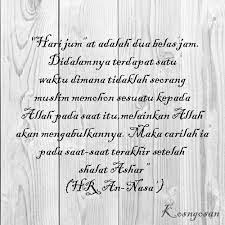 "Hari jum'at adalah dua belas jam.
Didalamnya terdapat satu
waktu dimana tidaklah seorang
muslim memohon sesuatu kepada
Allah pada saat itu,melainkan Allah
akan mengabulkannya. Maka carilah ia
pada saat-saat terakhir setelah
shalat Ashar"
(HR An-Nasa')
Kosngosan